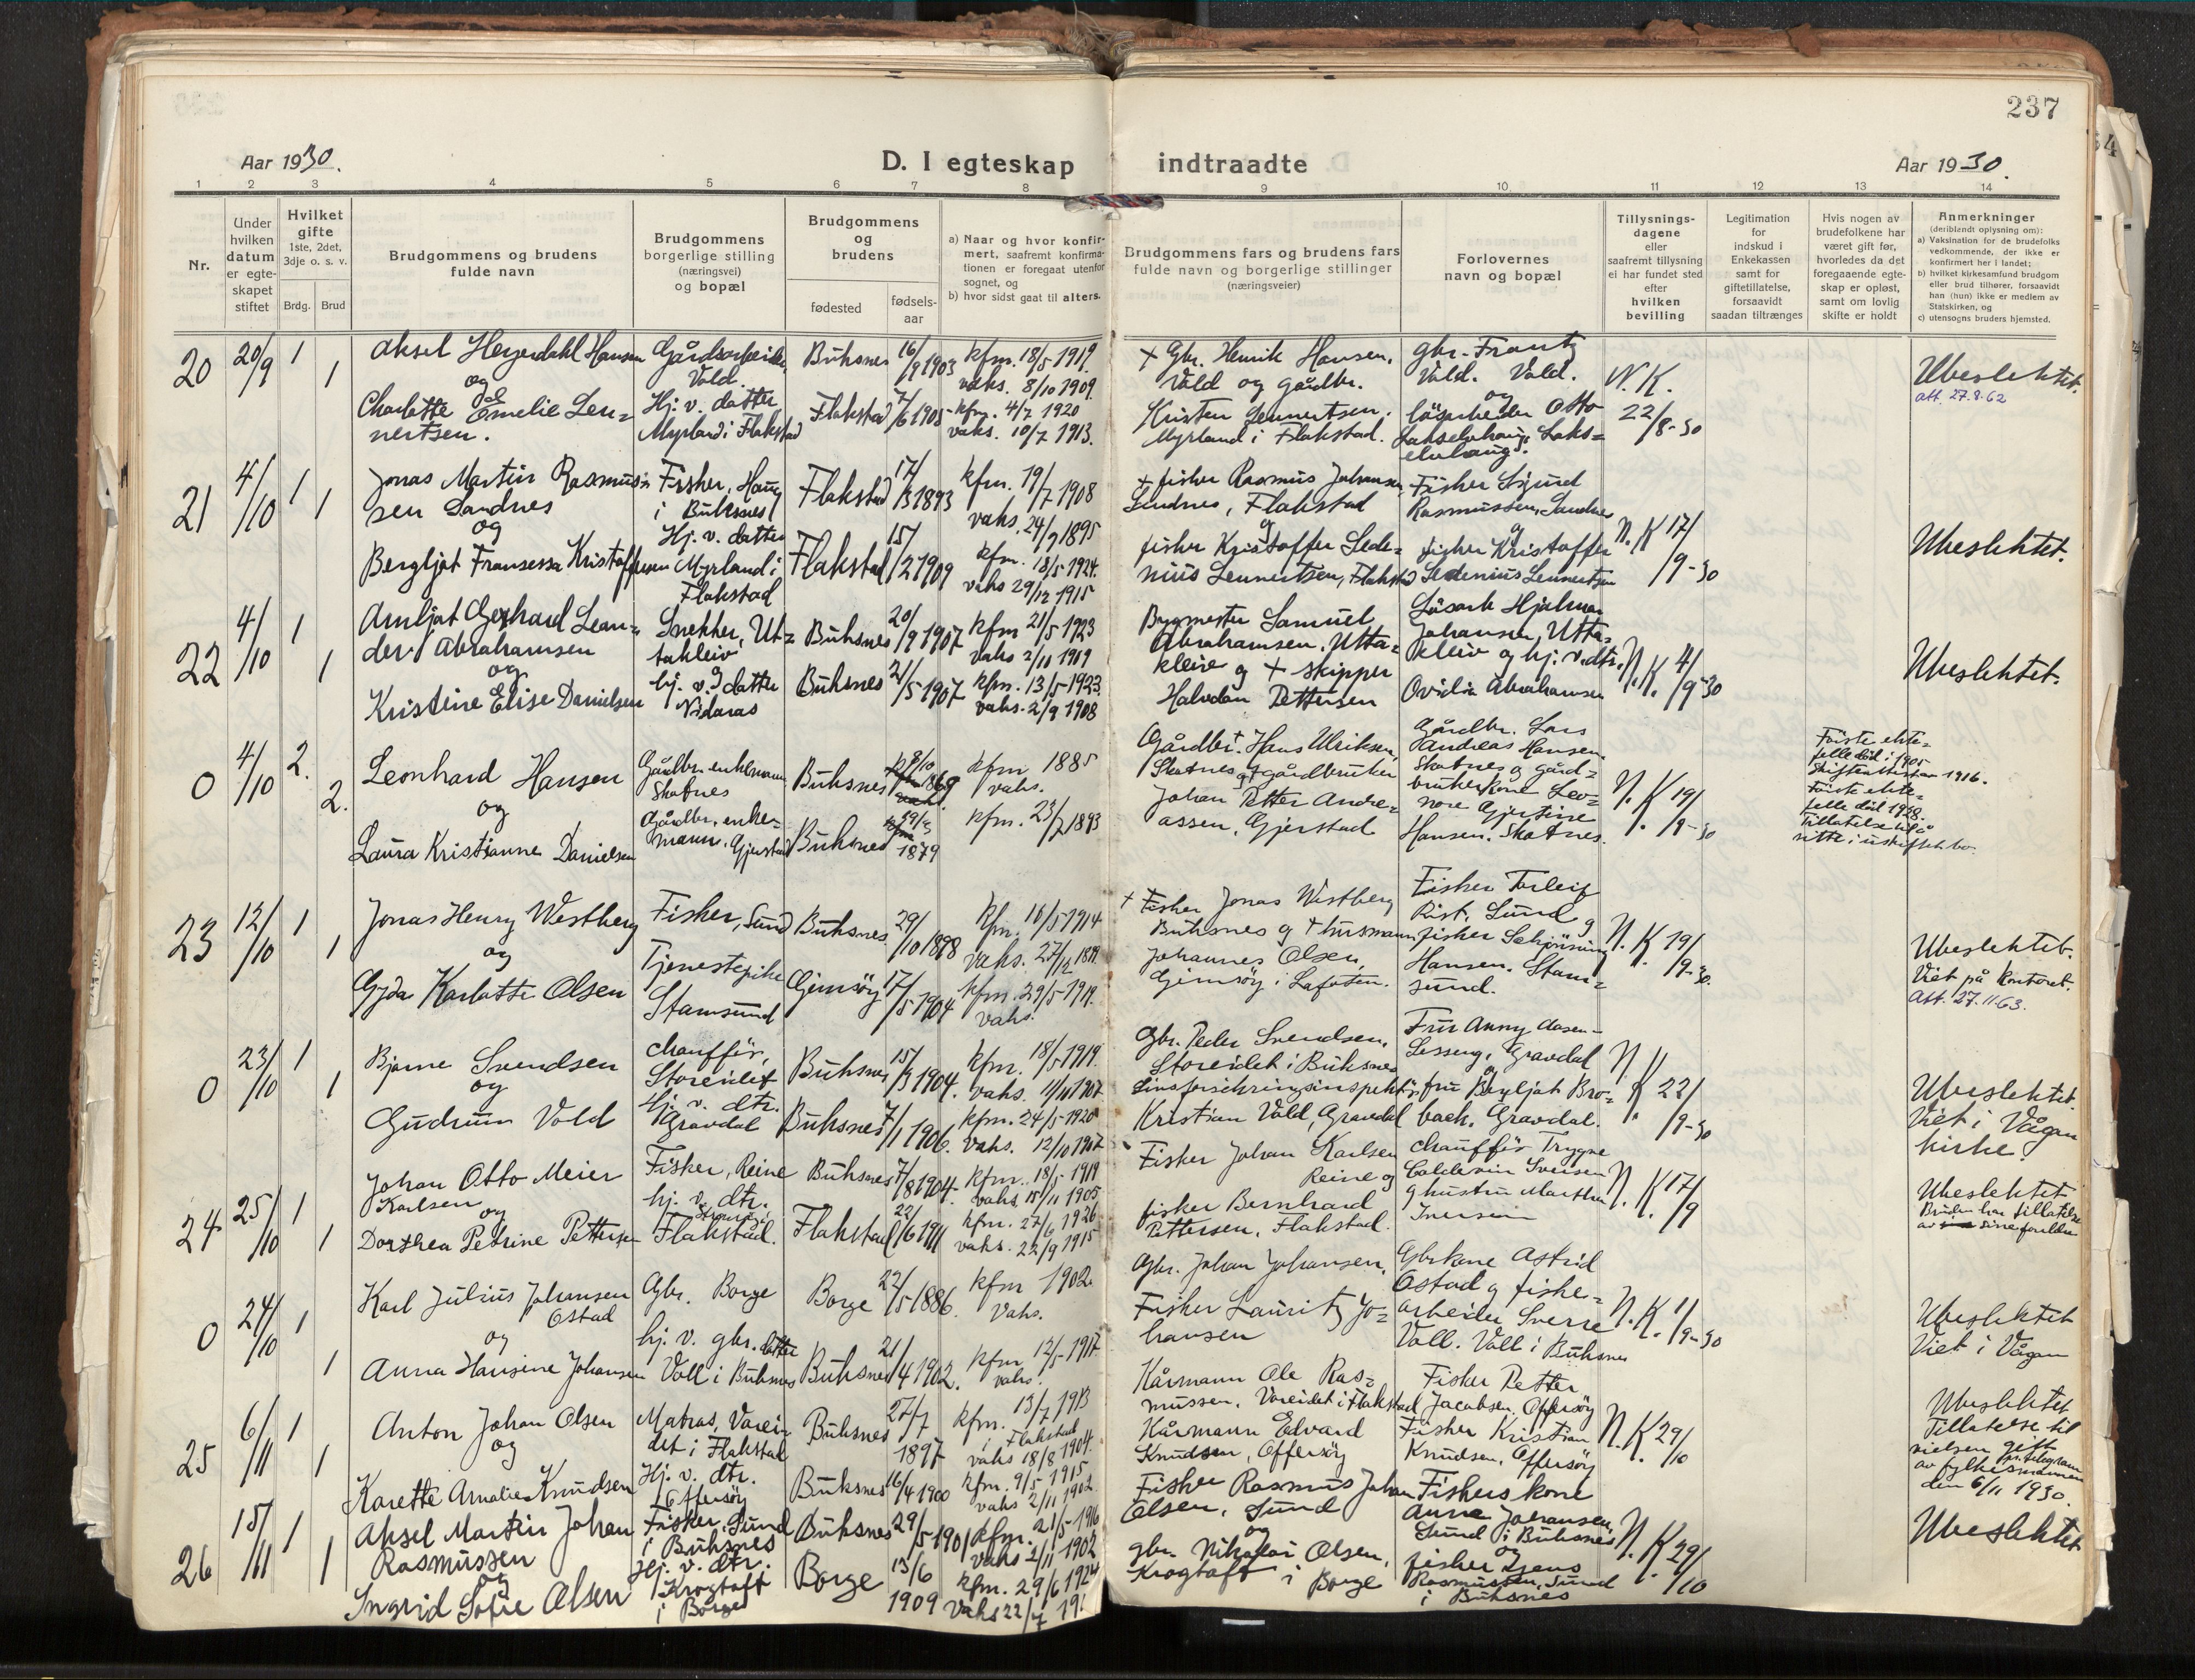 237
Aar 1930.
D. I egteskap
indtraadte
Aar 1930.
1 2 3 4 5 6 7 8 9 10 11 12 13 14
Nr.
Under hvilken datum er egteskapet stiftet
Hvilket gifte 1ste, 2det, 3dje o. s. v.
Brdg. Brud
Brudgommens og brudens fulde navn
Brudgommens borgerlige stilling (næringsvei) og bopæl
Brudgommens og brudens
fødested
fødsels-aar
a) Naar og hvor konfirmert, saafremt konfirmationen er foregaat utenfor sognet, og
b) hvor sidst gaat til alters.
Brudgommens fars og brudens fars fulde navn og borgerlige stillinger (næringsveier)
Forlovernes navn og bopæl
Tillysningsdagene eller saafremt tillysning ei har fundet sted efter hvilken bevilling
Legitimation for indskud i Enkekassen samt for giftetillatelse, forsaavidt saadan tiltrænges
Hvis nogen av brudefolkene har været gift før, hvorledes da det foregaaende egteskap er opløst, samt om lovlig skifte er holdt
Anmerkninger (deriblandt oplysning om):
a) Vaksination for de brudefolks vedkommende, der ikke er konfirmert her i landet;
b) hvilket kirkesamfund brudgom eller brud tilhører, forsaavidt han (hun) ikke er medlem av Statskirken, og
c) utensogns bruders hjemsted.
20 20/9 1 1
Aksel Heyerdahl Hansen
og
Charlotte Emelie Lennertsen.
Gårdsarbeider, Vold.
Hj. v. datter Myrland i Flakstad
Buksnes 16/9 1903 kfm. 18/5 1919. vaks. 8/10 1909.
Flakstad 7/6 1905 kfm. 4/7 1920 vaks. 10/7 1913.
+ Gbr. Henrik Hansen, Vold og gårdbr.
Kristen Lennertsen. Myrland i Flakstad.
gbr. Frantz Vold. Vold.
og
løsarbeider Otto
N. K. 22/8-30
Ubeslektet.
att. 27.8.62
21 4/10 1 1
Jonas Martin Rasmussen Sandnes
og
Bergljot Fransessa Kristoffersen
Fisker, Haug i Buksnes
Hj. v. datter Myrland i Flakstad
Flakstad 17/3 1893 kfm. 19/7 1908 vaks. 24/9 1895
Flakstad 15/2 1909 kfm. 18/5-1924. vaks 29/12 1915
+ fisker Rasmus Johansen Sandnes, Flakstad
og
fisker Kristoffer Sedenius Lennertsen, Flakstad
Fisker Sigurd Rasmussen, Sandnes
og
fisker Kristoffer Sedenius Lennertsen
N. K 17/9-30
Ubeslektet.
22 4/10 1 1
Arnljot Gerhard Leander Abrahamsen
og
Kristine Elise Danielsen
Snekker, Uttakleiv
og
hj. v. datter Nidaras
Buksnes 20/9 1907 kfm 21/5 1923 vaks 2/11 1909
Buksnes 21/5 1907 kfm. 13/5-1923. vaks. 2/9 1908
Bygmester Samuel Abrahamsen, Uttakleiv og + skipper
Halvdan Pettersen
Løsarb Hjalmar Johansen, Uttakleiv og hj. v. dtr.
Ovidia Abrahamsen
N. K. 4/9-30
Ubeslektet.
0 4/10 2. 2.
Leonhard Hansen
og
Laura Kristianne Danielsen
Gårdbr. enkemann Skotnes
Gårdbr. enkemann, Gjerstad
Buksnes 9/10 1869 kfm 1885 vaks.
Buksnes 29/3 1879 kfm. 23/7 1893
Gårdbr. + Hans Ulriksen, Skotnes og + gårdbruker
Johan Petter Andreassen, Gjerstad
Gårdbr. Lars Andreas Hansen. Skotnes og gårdbrukerkone Leonore Gjertine Hansen. Skotnes.
N. K 19/9-30
Første ektefelle død i 1905 Skifteattest 1916.
første ektefelle død 1928. Tillatelse til å sitte i uskiftet bo.
23 12/10 1 1
Jonas Henry Westberg
og
Gyda Karlotte Olsen
Fisker, Sund
Tjenestepike Stamsund
Buksnes 29/10 1898 kfm. 16/5 1914 vaks. 27/12 1899.
Gimsøy 17/5 1904 kfm. 29/5-1919. vaks.
+ Fisker Jonas Westberg Buksnes og + husmann
Johannes Olsen, Gimsøy i Lofoten.
Fisker Torleif Rist. Sund og
fisker Schjønning Hansen. Stamsund.
N. K 19/9-30.
Ubeslektet.
Viet på kontoret.
Att. 27.11.63.
0 23/10 1 1
Bjarne Svendsen
og
Gudrun Vold
Chauffør, Storeidet
hj. v. dtr. Gravdal
Buksnes 15/3 1904. kfm. 18/5 1919. vaks. 11/11 1907
Buksnes 7/1 1906. kfm. 24/5-1920 vaks. 12/10 1907
Gbr. Peder Svendsen. Storeidet i Buksnes
Kristian Vold, Gravdal
Fru Anny Aasen-Lesseng, Gravdal
og
fru Bergljot Brobach. Gravdal.
N. K. 22/9-30
Ubeslektet.
Viet i Vågan kirke.
24 25/10 1 1
Johan Otto Meier Karlsen
og
Dorthea Petrine Pettersen
Fisker, Reine
hj. v. dtr. Flakstad.
Buksnes 7/8 1904. kfm. 18/5-1919 vaks. 15/11 1905.
Flakstad 22/6 1911 kfm. 27/6 1926 vaks. 22/9 1915
Fisker Johan Karlsen Reine og
fisker Bernhard Pettersen, Flakstad.
Chauffør Trygve Iversen
og hustru Marthea Iversen
N. K. 17/9
Ubeslektet
Bruden har tillatelse av sine foreldre
0 24/10 1 1
Karl Julius Johansen Ostad
og
Anna Hansine Johansen
Gbr. Borge
hj. v. gbr. datter Voll i Buksnes
Borge 22/5 1886. kfm 1902. vaks.
Buksnes 21/4 1902. kfm 12/5-1917 vaks.
Gbr. Johan Johansen,
Fisker Lauritz Johansen
Gbrkone Astrid Ostad og fiskearbeider Sverre Voll. Voll i Buksnes
N. K. 1/9-30
Ubeslektet
Viet i Vågan
25 6/11 1 1
Anton Johan Olsen
og
Karette Amalie Knudsen
Matros, Vareidet i Flakstad
Hj. v. dtr. Offersøy
Buksnes 27/7 1897 kfm. 13/7 1913 i Flakstad vaks 18/8 1904.
Buksnes 16/4 1900 kfm. 9/5 1915 vaks 2/11 1902.
Kårmann Ole Rasmussen. Vareidet i Flakstad
Kårmann Edvard Knudsen, Offersøy
Fisker Petter Jacobsen, Offersøy
Fisker Kristian Knudsen, Offersøy
N. K. 29/10
Ubeslektet
Tillatelse til vielsen gitt pr. telegram av fylkesmannen den 6/11 1930.
26 15/11 1 1
Aksel Martin Johan Rasmussen
og
Ingrid Sofie Olsen
Fisker, Sund i Buksnes
Hj. v. dtr. Krogtoft i Borge
Buksnes 29/5-1901 kfm. 21/5-1916 vaks 2/11 1902
Borge 13/6 1909 kfm. 29/6 1924 vaks 22/7 19
Fisker Rasmus Johan Olsen, Sund
og
gbr. Nikolai Olsen, Krogtoft i Borge
Fiskers kone Anne Johansen, Sund i Buksnes
og
fisker Jens Rasmussen, Sund i Buksnes
N. K. 29/10
Ubeslektet